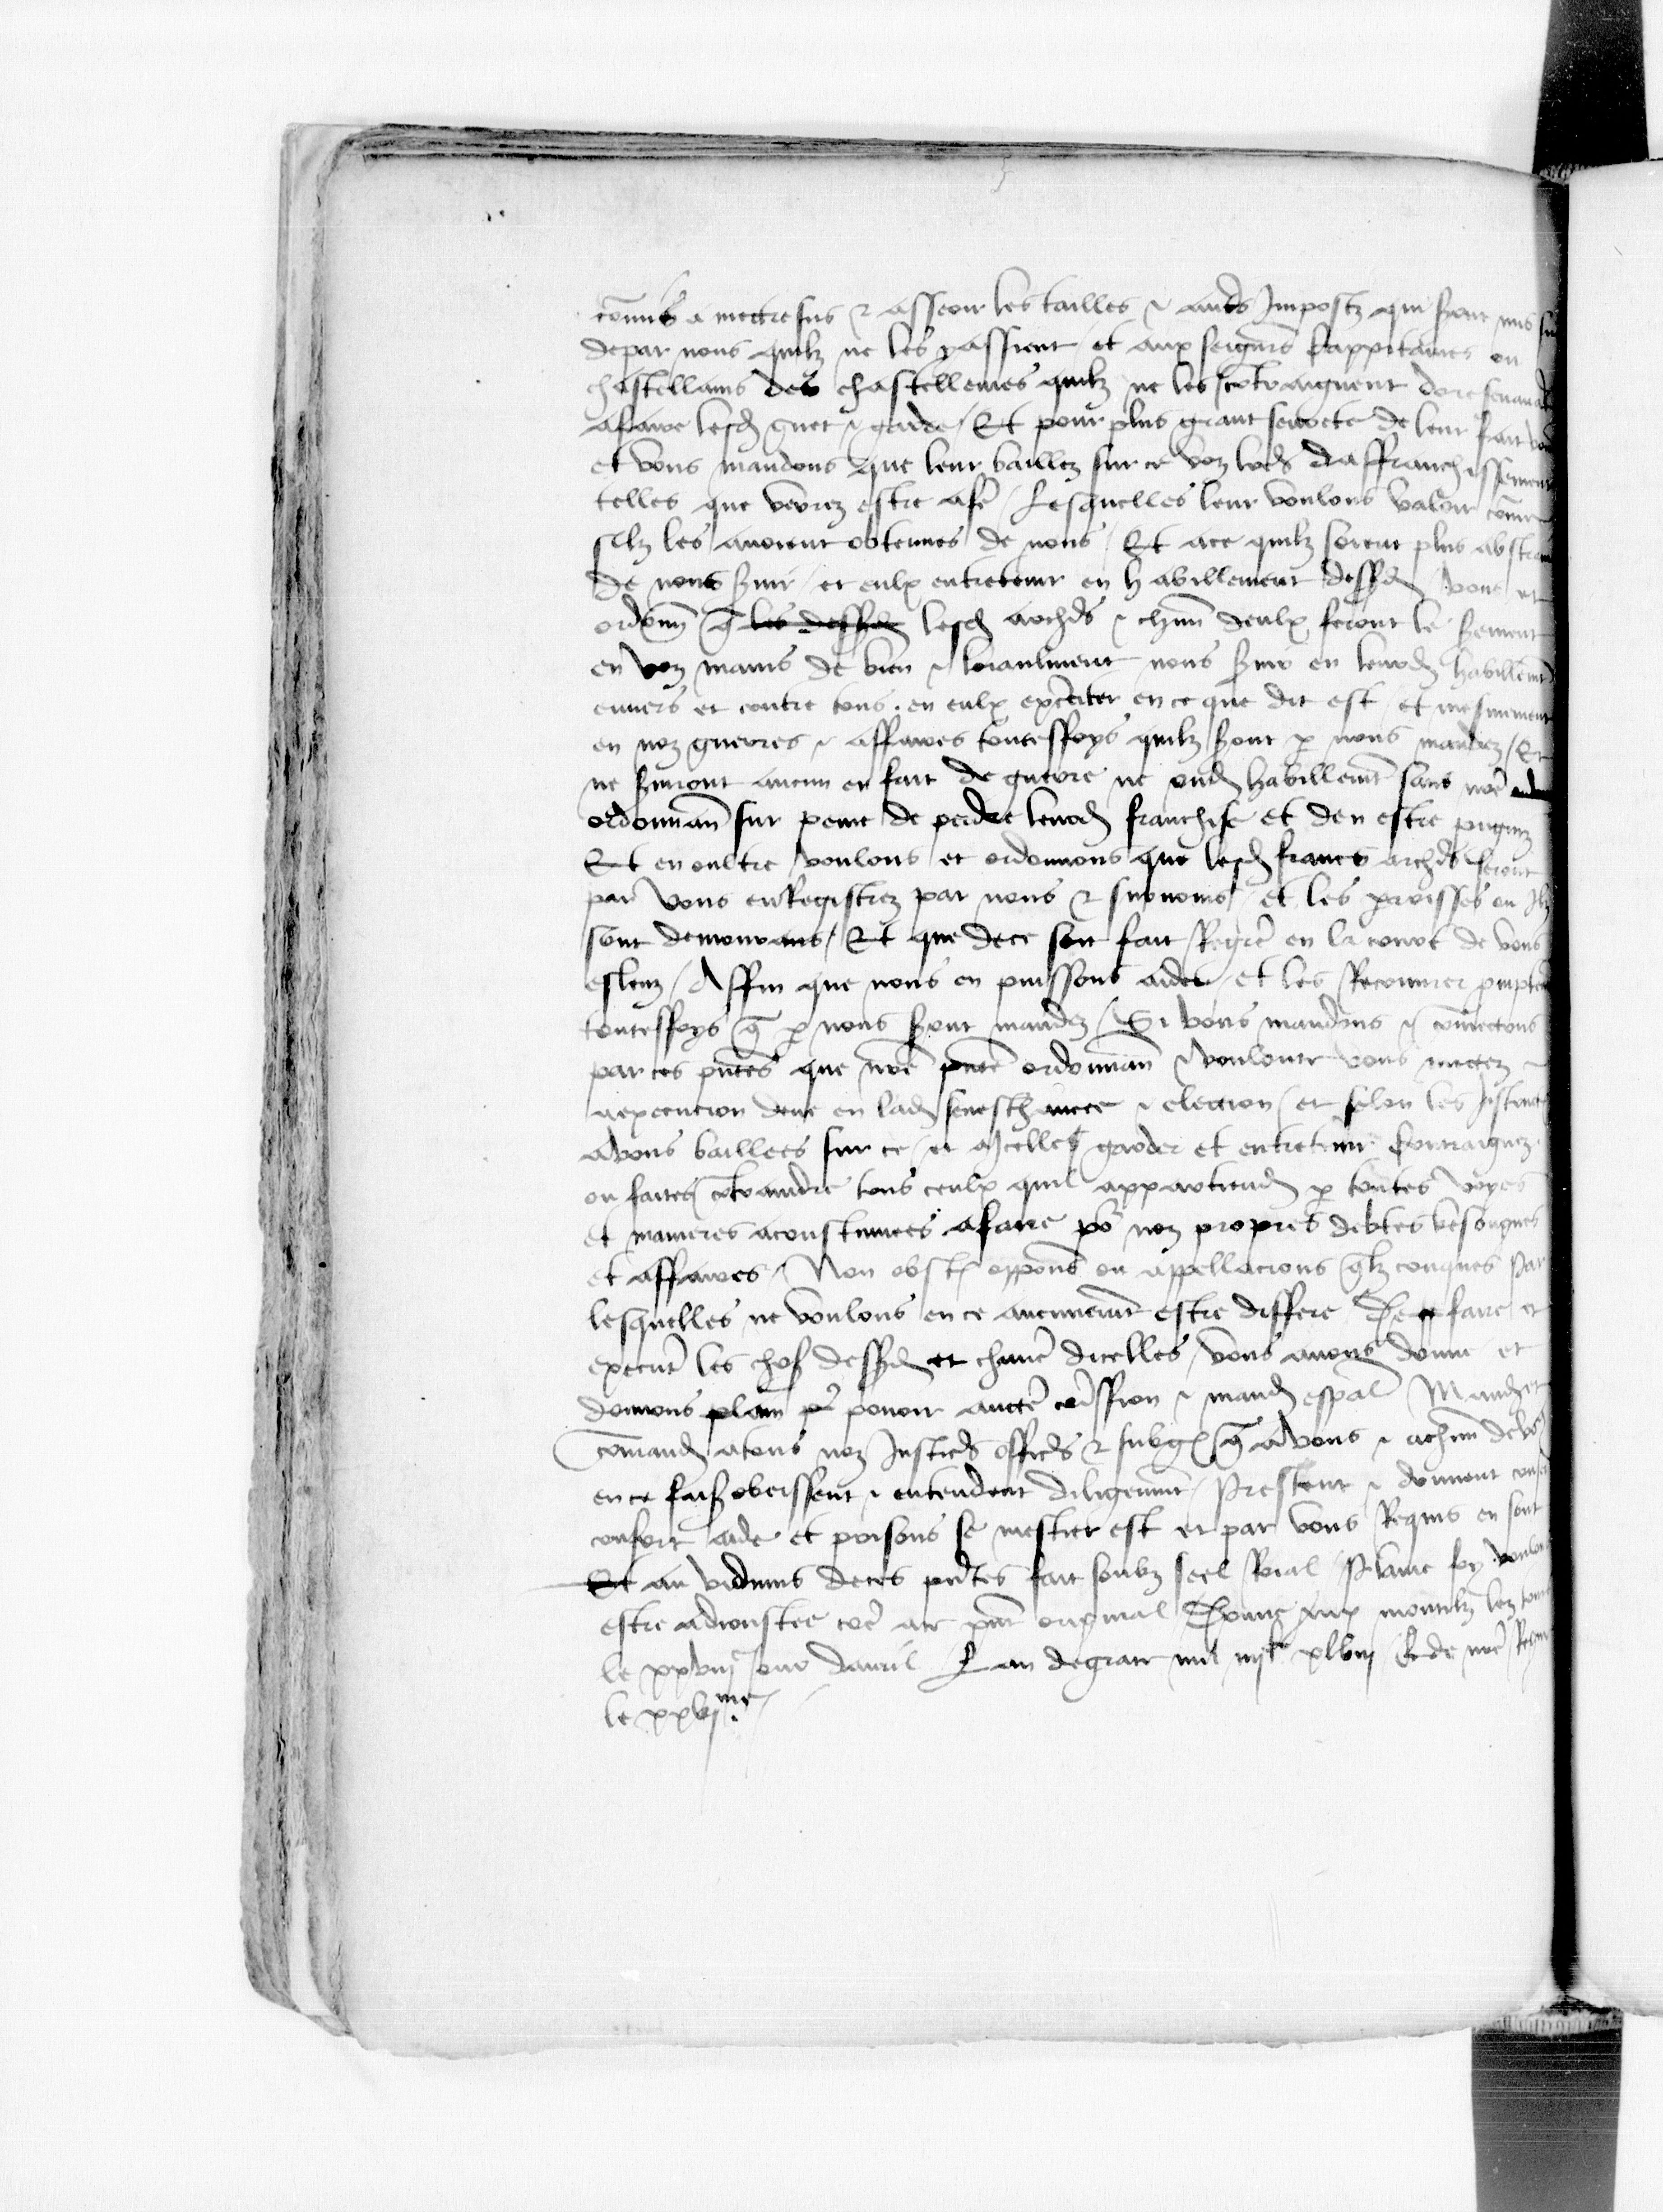 commis a mettre sus & asseoir les tailles & autres Impostz qui seront mis su
depar nous quilz ne les y assieent / et aux seigneurs Cappitaines ou
chastellains des chastellenies quilz ne les contraignent doresenavant
afaire lesd guet & garde / Et pour plus grant seurete de leur fait vou
et vous mandons que leur baillez sur ce voz lectres daffranchissement
telles que verrez estre afe / Lesquelles leur voulons valoir comme
silz les avoient obtenues de nous / Et ace quilz soient plus abstrains
de nous servir / et eulx entretenir en habillement dessusd / vou et
ordonn que les dessusd lesd archers & chun deulx feront le serment
en voz mains de bien & loiaulment nous servir en leurd habillement
envers et contre tous . en eulx exerciter en ce que dit est / et mesmement
en noz guerres & affaires toutesfoys quilz seront par nous mandez / Et
ne serviront aucun en fait de guerre ne oud habillemt sans nre
ordonnan sur peine de perdre leurd franchise et den estre pugniz
Et en oultre voulons et ordonnons que lesd francs archers seront
par vous enRegistrez par noms & surnoms / et les parroisses ou Ilz
sont demourans / Et que dece soit fait Regre en la court de vous
esleuz / Affin que nous en puissons aider / et les Recouvrer promptemt
toutesfoys que par nous seront mandez / Si vous mandons & commectons
par ces pntes que nre pnte ordonnan & voulonte vous mectez
a execucion deue en lad seneschaucee & election / et selon les Instructi
avous baillees sur ce / et Icelles garder et entretenir Contraignez
ou faites contraindre tous ceulx quil appartiendra par toutes voyes
et manieres acoustumees afaire pour noz propres debtes besongnes
et affaires / Non obstant opposons ou appellacions quelzconques Par
lesquelles ne voulons en ce aucunemt estre differe De ce faire et
executer les choses dessusd et chune dicelles / vous avons donne et
donnons plain povoir aucte commission & mand espal Mandons et
commandons atous noz Justiciers officiers & subgez que avous & achun de vous
en ce faisant obeissent & entendent diligemmt / Prestent & donnent conseil
confort aide et prisons se mestier est et par vous Requis en sont
Et au vidimus deces pntes fait soubz seel Roial Plaine foy voulons
estre adjoustee comme ace pnt original Donne aux montilz lez tours
le xxviije jour davril Lan degrace mil iiijc xlviij Et de nre Regne
le xxvjme /